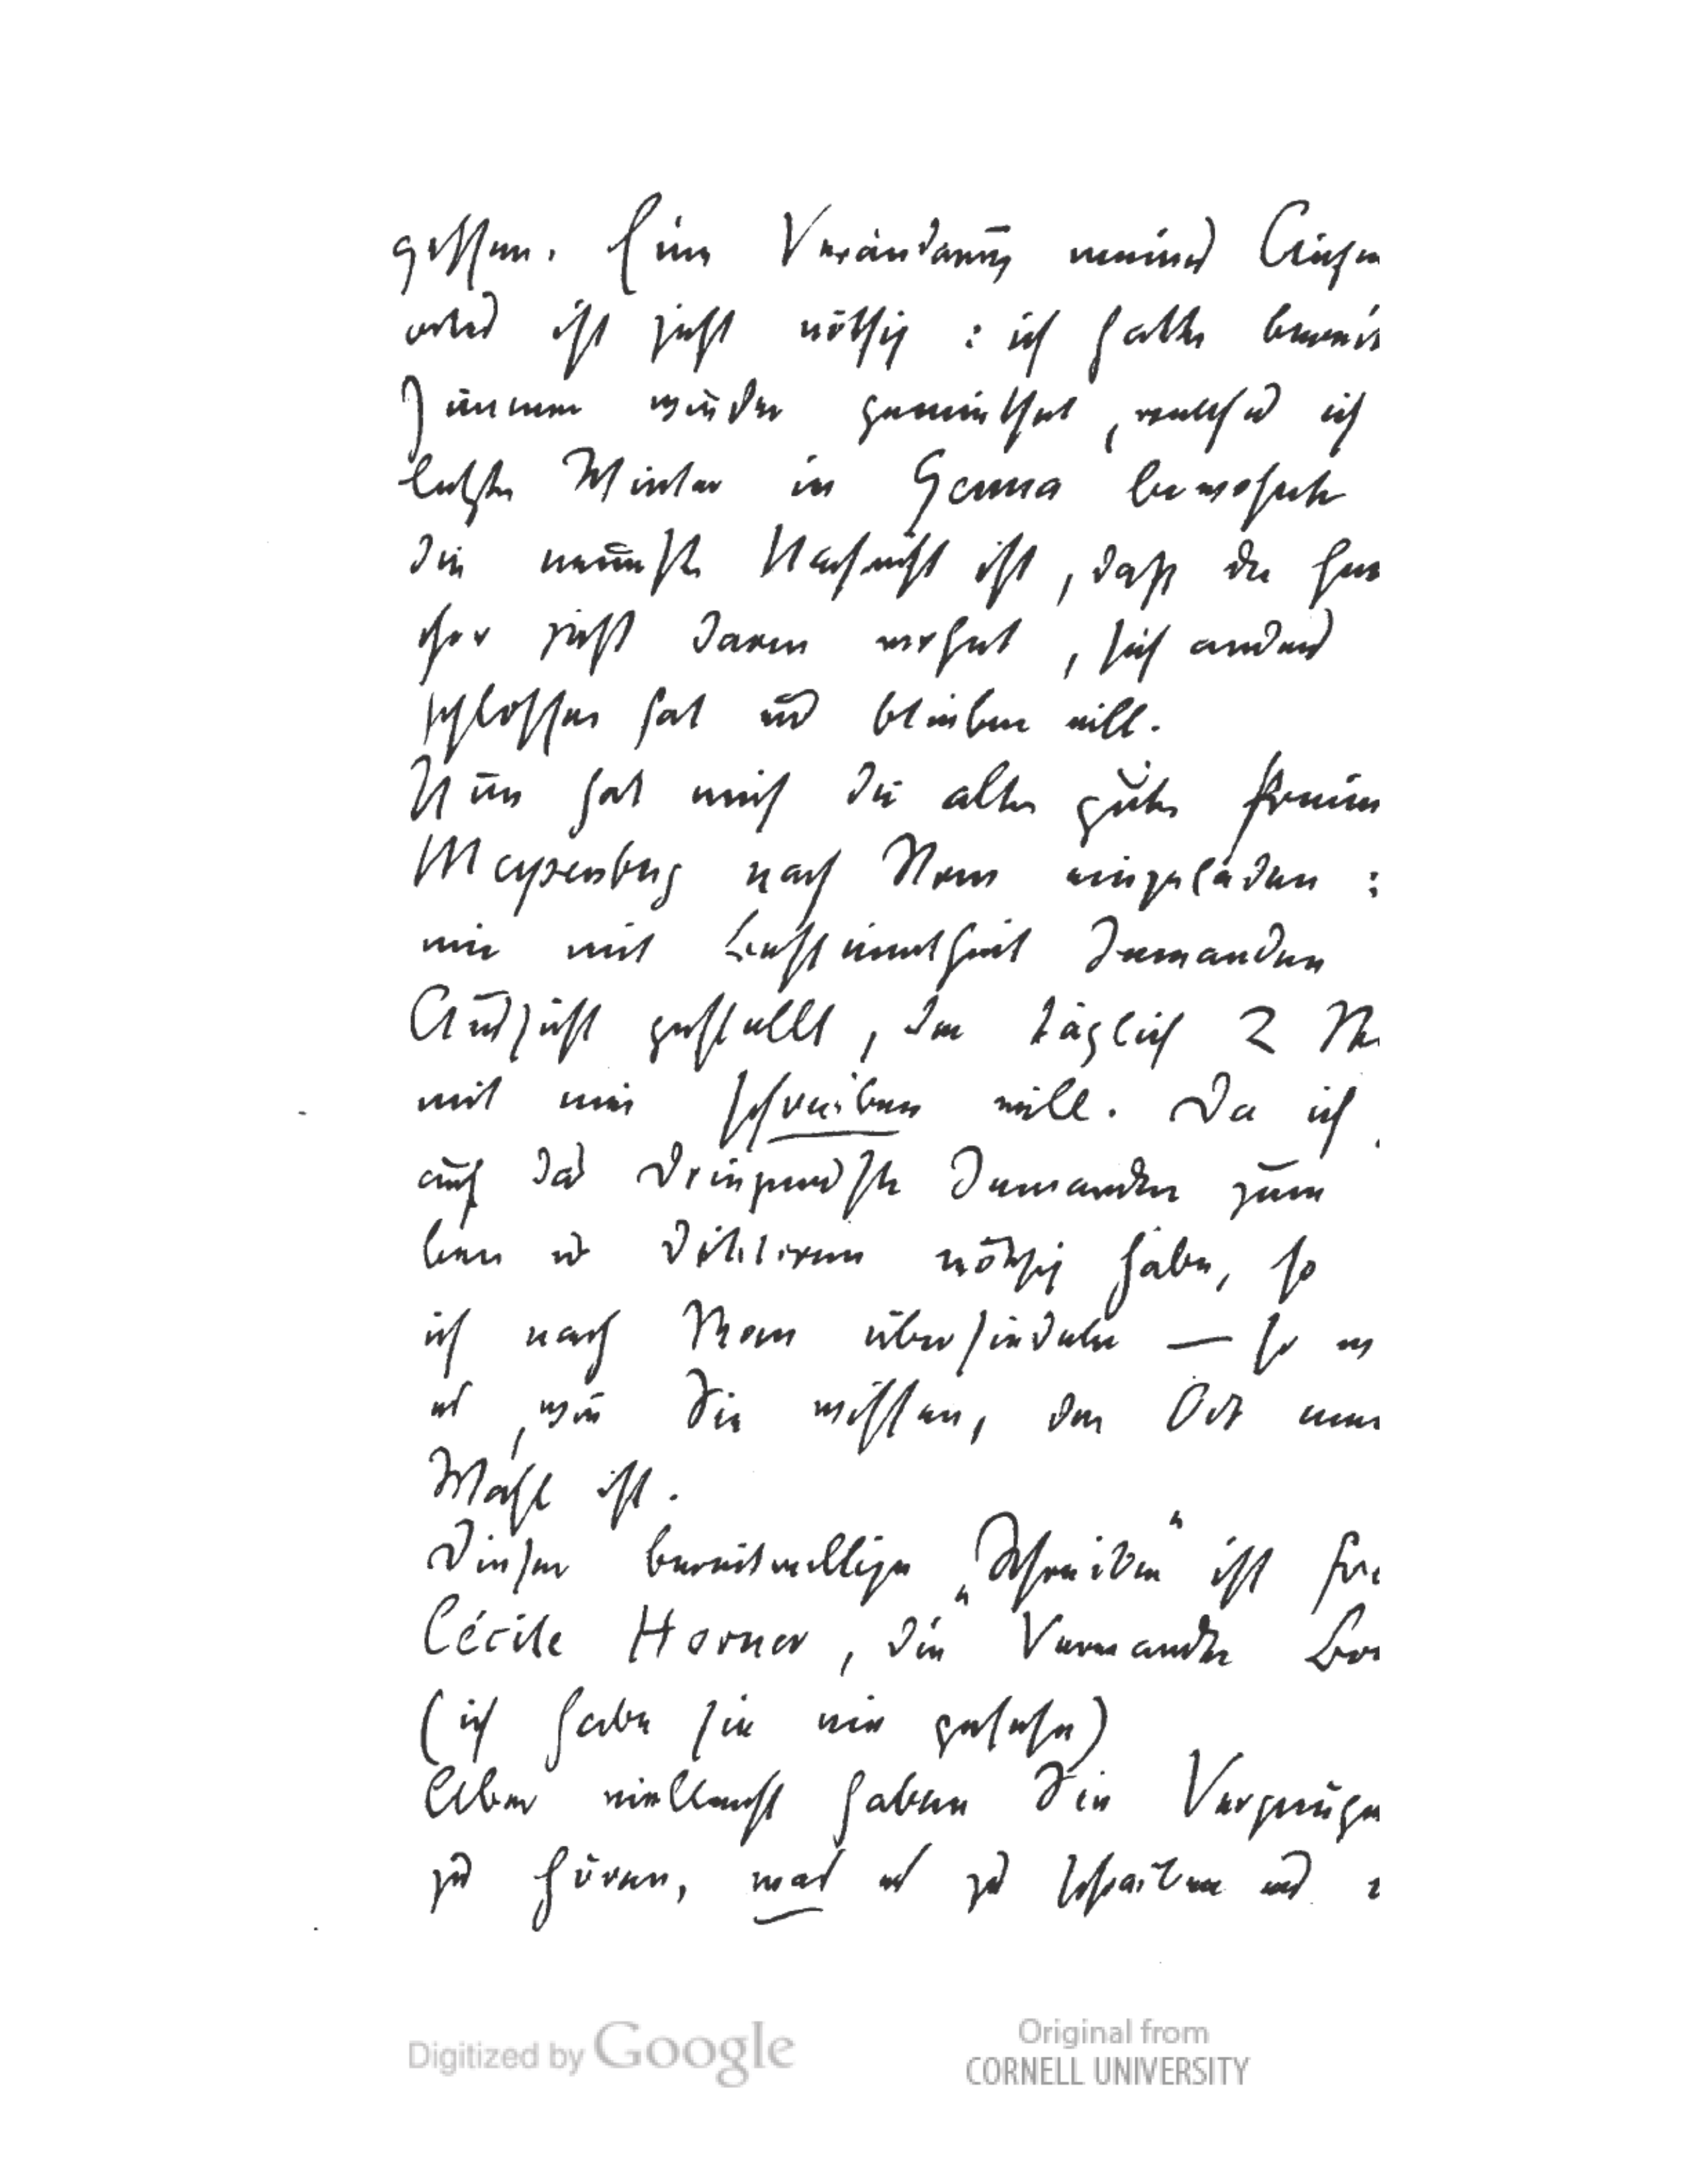 gessen. Eine Veränderung meines Aufen
ortes ist jetzt nöthig: ich hatte bereits
Zimmer wieder gemiethet, welches ich
letzten Winter in Genua bewohnte
die neueste Nachricht ist, daß der
jetzt darin wohnt, sich anders
schlossen hat und bleiben will.
Nun hat mich die alte gute Freun
Meysenbug nach Rom eingeladen:
mir mit Bestimmtheit Jemanden
Aussicht gestellt, der täglich 2
mit mir schreiben will. Da ich
auf das Dringendste Jemanden zum
ben u Diktiren nöthig habe, so
ich nach Rom übersiedeln — so
es, wie Sie wissen, der Ort
Wahl ist.
Dieser bereitwillige „Schreiber“ ist
Cécile Horner, die Verwandte
(ich habe sie nie gesehn)
Aber vielleicht haben Sie Vergnügen
zu hören, was es zu schreiben und
Digitized by Google
Original from
CORNELL UNIVERSITY